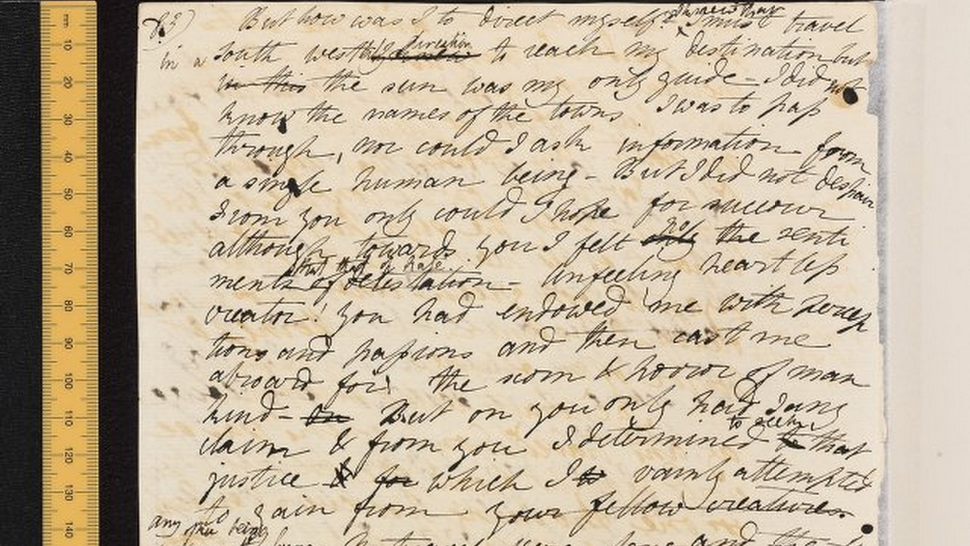 83)
But how was I to direct myself? I must travel
in a south westerly direction to reach my destination but
in this the sun was my only guide - I did not
know the names of the towns I was to pass
through, nor could I ask information from
a single human being - But I did not despair
From you only could I hope for succour
although towards you I felt only no the senti
but that of hate
ments of detestation - Unfeeling heartless
creator! You had endowed me with percep
tions and passions and then cast me
abroad for the scorn & horror of man
kind - On But on you only had I any
to seek
claim & from you I determined to that
justice for which I vainly attempted
to gain from your fellow creatures.
any other being
and